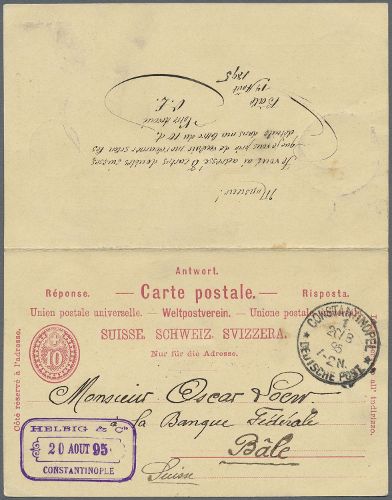 Bâle
14 Août 1895
Monsieur!
Je vous ai adressé 8 cartes doubles suisses
que je vous prie de vouloir me retourner selon les
détails dans ma lettre du 10 ct.
Votre dévoué
Antwort.
Réponse. — Carte postale. — Risposta.
Union postale universelle. — Weltpostverein. — Unione postale
SUISSE. SCHWEIZ. SVIZZERA.
Nur für die Adresse.
Côté réservé à l'adresse.
10
CONSTANTINOPEL
1
20/8
95
1-2N.
DEUTSCHE POST
Monsieur Oscar
la Banque Fédérale
Bâle
Suisse
HELBIG & Cº
20 AOUT 95
CONSTANTINOPLE